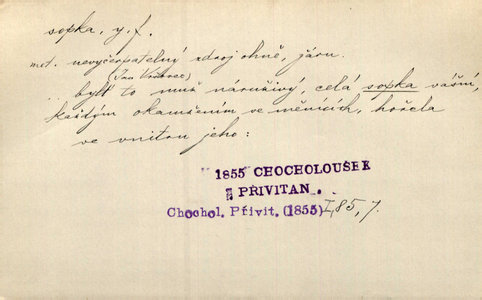 sopka, y, f.
met. nevyčerpatelný zdroj ohně, žáru.
(Jan Vršovec)
... bylť to muž náruživý, celá sopka vášní,
každým okamžením se měnících, hořela
ve vnitru jeho:
1855 CHOCHOLOUŠEK
PŘIVITAN.
Chochol. Přivit. (1855) I, 85, 7.